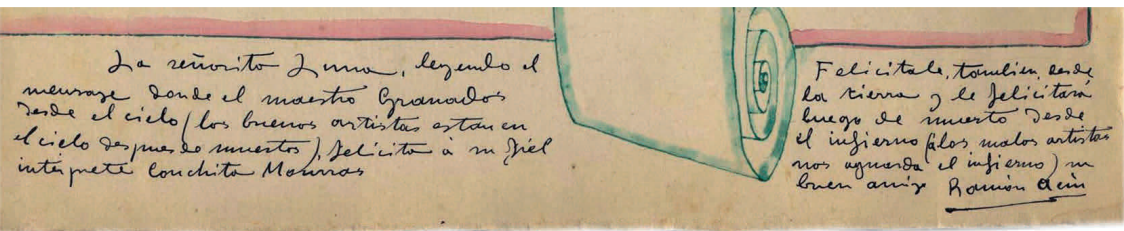 La señorita Luna, leyendo el
mensage donde el maestro Granados
desde el cielo (los buenos artistas estan en
el cielo despues de muertos), felicita á su fiel
intérprete Conchita Mourras
Felicitale, tambien, desde
la tierra y le felicitará
luego de muerto desde
el infierno (á los malos artistas
nos aguarda el infierno) su
buen amigo Ramón Acín